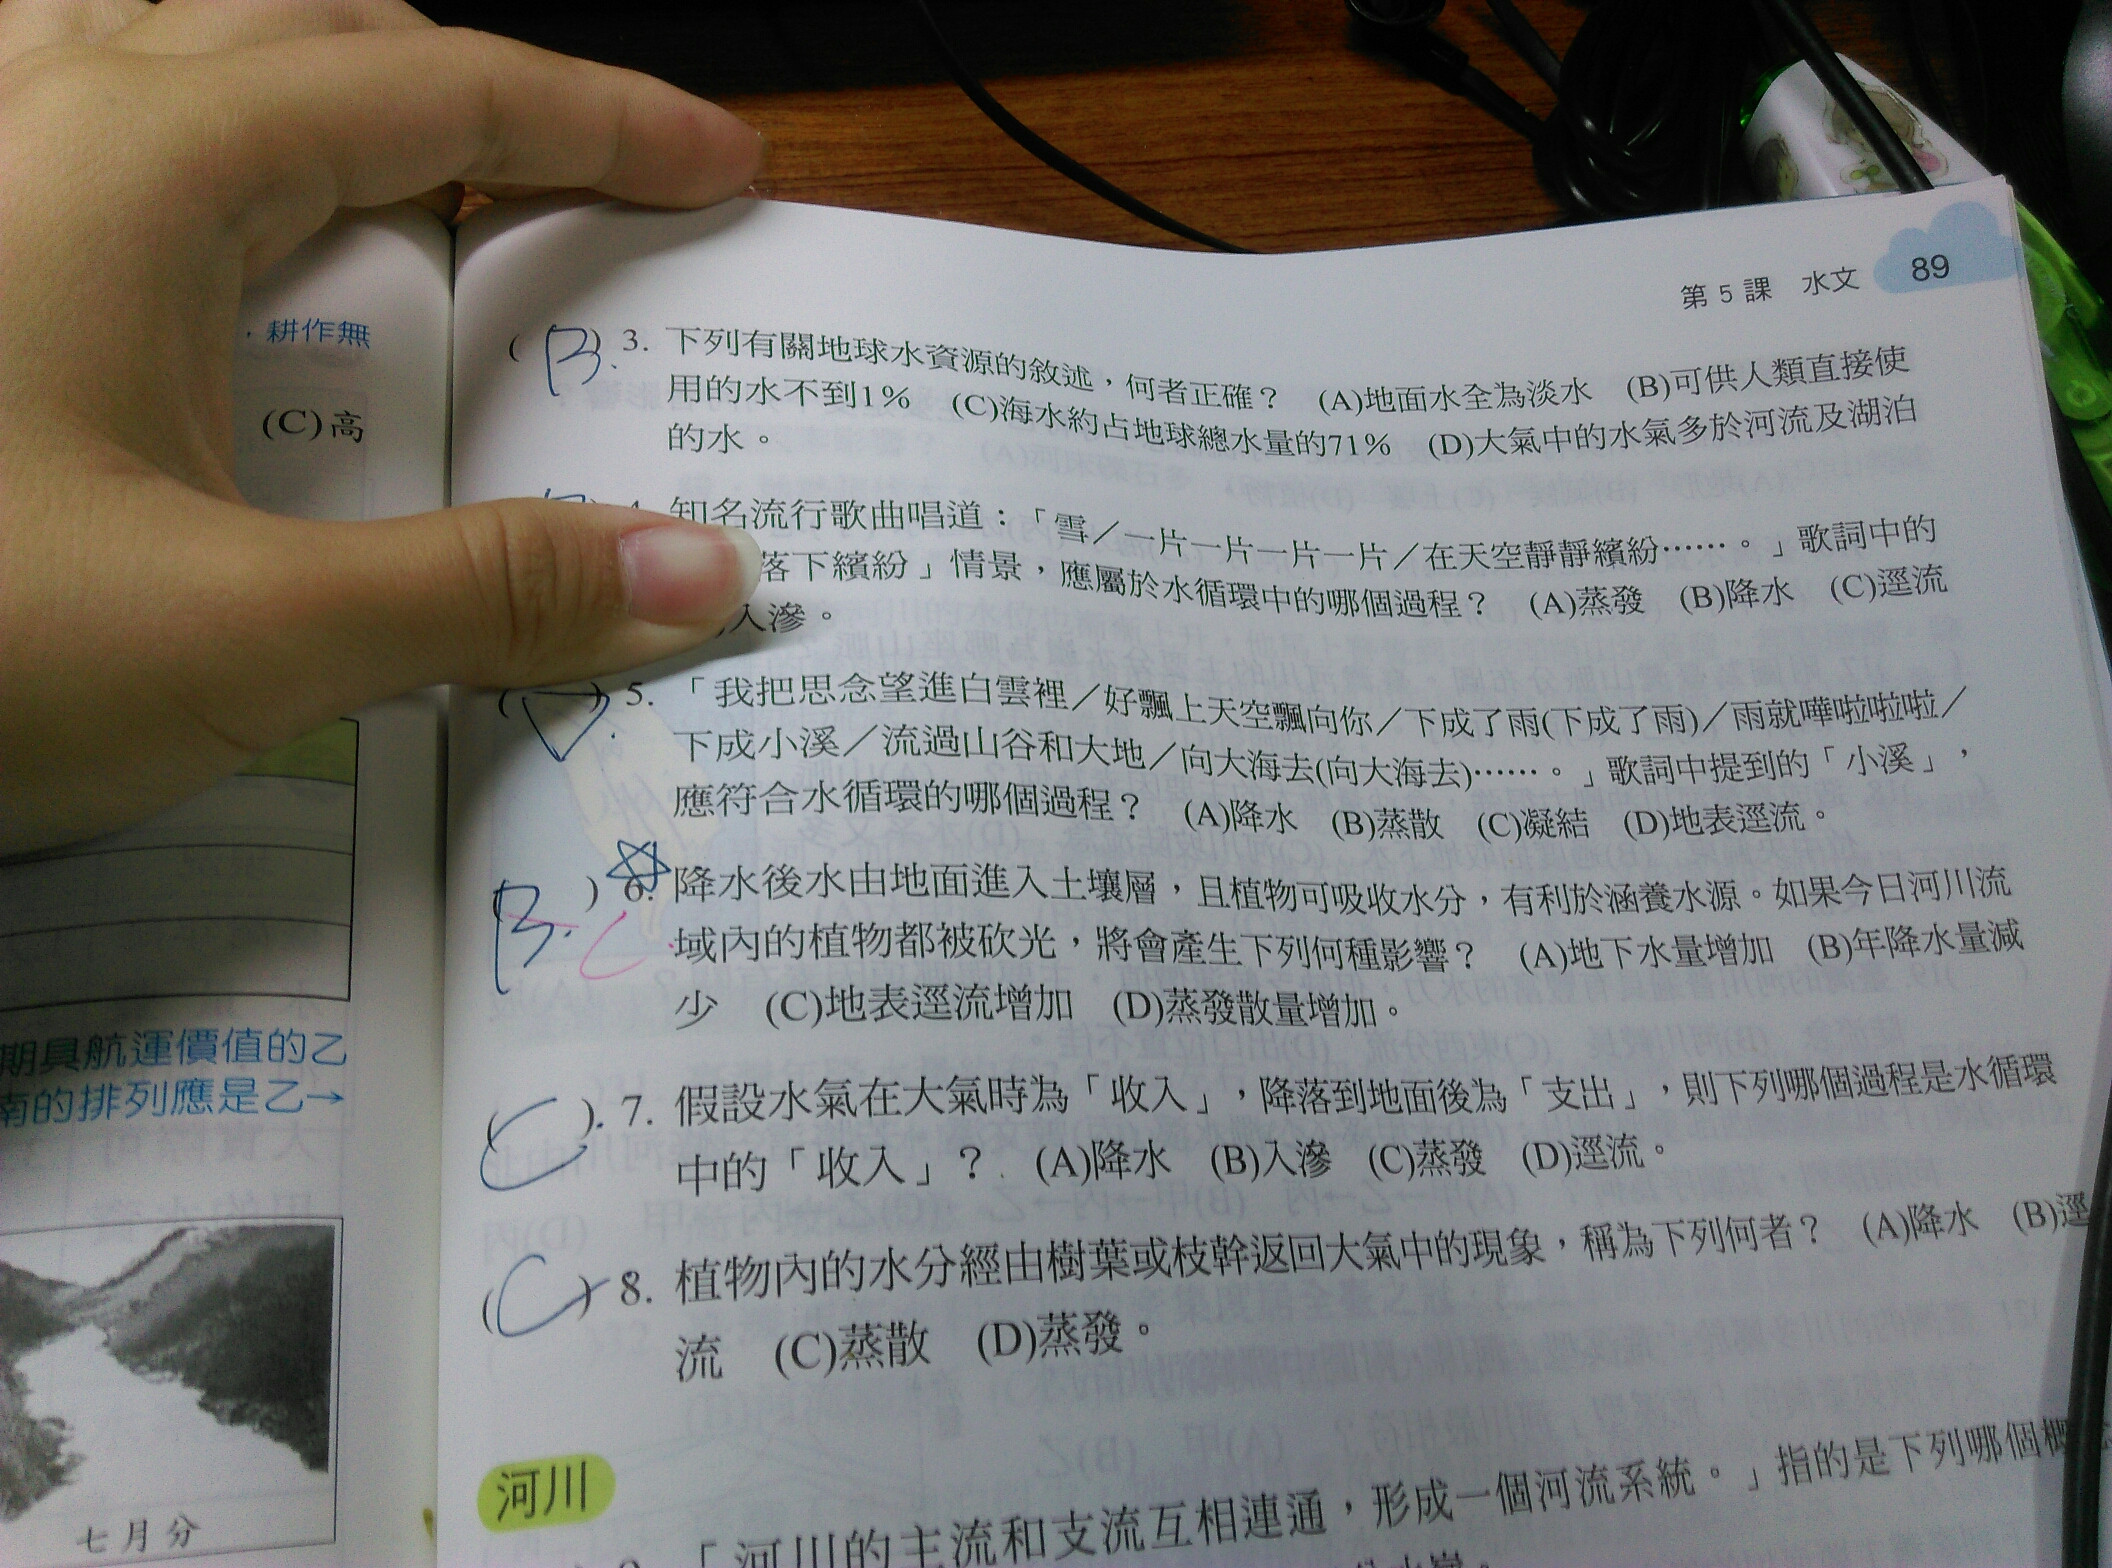 第5課 水文 89
．耕作無
(C)高
期具航運價值的乙
南的排列應是乙→
七月分
( B ) 3. 下列有關地球水資源的敘述，何者正確？ (A)地面水全為淡水 (B)可供人類直接使
用的水不到1% (C)海水約占地球總水量的71% (D)大氣中的水氣多於河流及湖泊
的水。
知名流行歌曲唱道：「雪／一片一片一片一片／在天空靜靜繽紛……。」歌詞中的
落下繽紛」情景，應屬於水循環中的哪個過程？ (A)蒸發 (B)降水 (C)逕流
入滲。
( D ) 5. 「我把思念望進白雲裡／好飄上天空飄向你／下成了雨(下成了雨)／雨就嘩啦啦啦／
下成小溪／流過山谷和大地／向大海去(向大海去)……。」歌詞中提到的「小溪」，
應符合水循環的哪個過程？ (A)降水 (B)蒸散 (C)凝結 (D)地表逕流。
( B. C ) 6. 降水後水由地面進入土壤層，且植物可吸收水分，有利於涵養水源。如果今日河川流
域內的植物都被砍光，將會產生下列何種影響？ (A)地下水量增加 (B)年降水量減
少 (C)地表逕流增加 (D)蒸發散量增加。
( C ) 7. 假設水氣在大氣時為「收入」，降落到地面後為「支出」，則下列哪個過程是水循環
中的「收入」？ (A)降水 (B)入滲 (C)蒸發 (D)逕流。
( C ) 8. 植物內的水分經由樹葉或枝幹返回大氣中的現象，稱為下列何者？ (A)降水 (B)逕
流 (C)蒸散 (D)蒸發。
河川
「河川的主流和支流互相連通，形成一個河流系統。」指的是下列哪個概